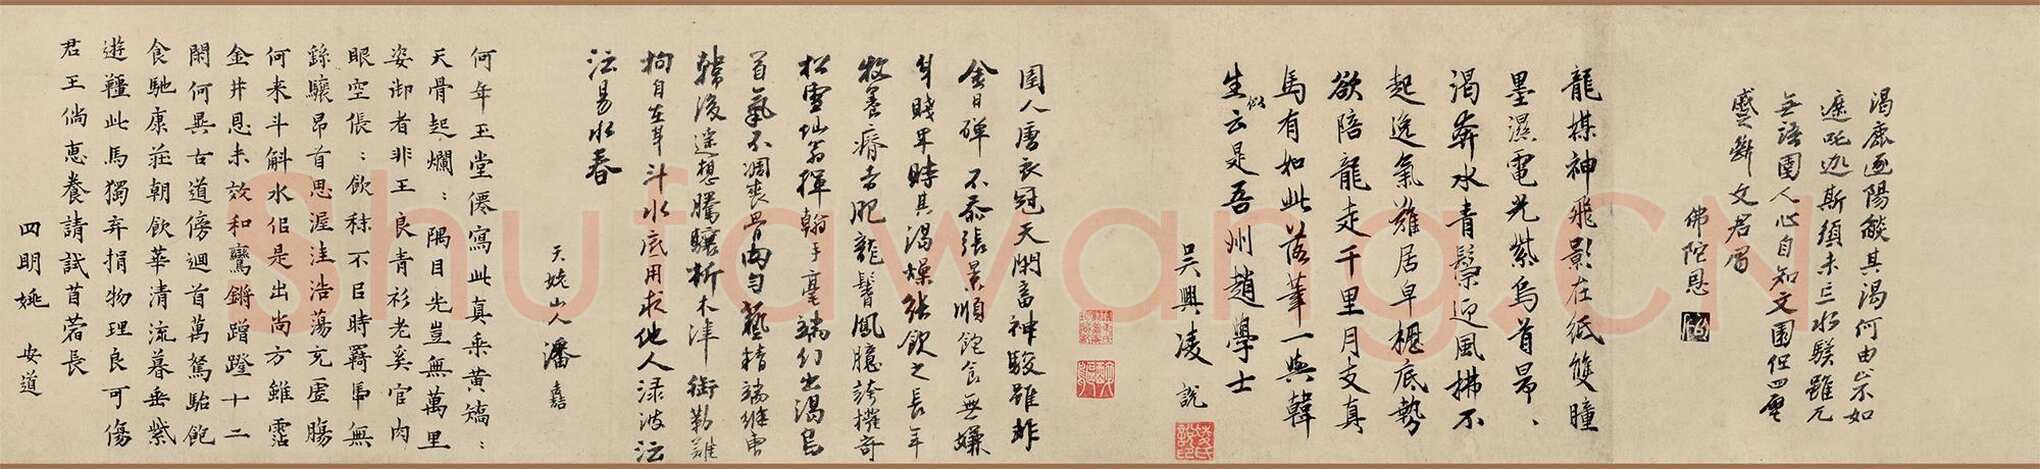 渴鹿逐陽燄其渴何由止宗如
無語圉人心自知文園但四壁
蹙斷文君眉
佛陀恩
龍媒神飛影在紙雙瞳
墨濕電光紫烏首昂、
渴奔水青鬃迎風拂不
起逸氣雄居皁櫪底勢
欲陪龍走千里月支真
馬有如此落筆一與韓
生似云是吾州趙學士
吳興凌說
圉人唐衣冠天閑畜神駿雖非
金日磾不忝張景順飽食無嫌
牧養瘠者肥龍鬐鳳臆誇權奇
松雪仙翁揮翰手毫端幻出渴烏
首氣不凋喪骨肉勻藝精
韓後還想騰驤析木津銜勒難
拘自在身斗水底用求他人淥波江
江易水春
天姥山人潘嘉
何年玉堂僊寫此真乘黃矯:
天骨起爛:隅目光豈無萬里
姿御者非王良青衫老奚官肉
眼空倀:飲秣不以時羇馬無
繇驤昂首思渥洼浩蕩充虛腸
何来斗斛水但是出尚方雖霑
金井恩未效和鸞鏘蹭蹬十二
閑何異古道傍迴首萬駑駘飽
食馳康莊朝飲華清流暮垂紫
遊韁此馬獨弃捐物理良可傷
君王倘惠養請試苜蓿長
四明姚安道
Shufawang.CN